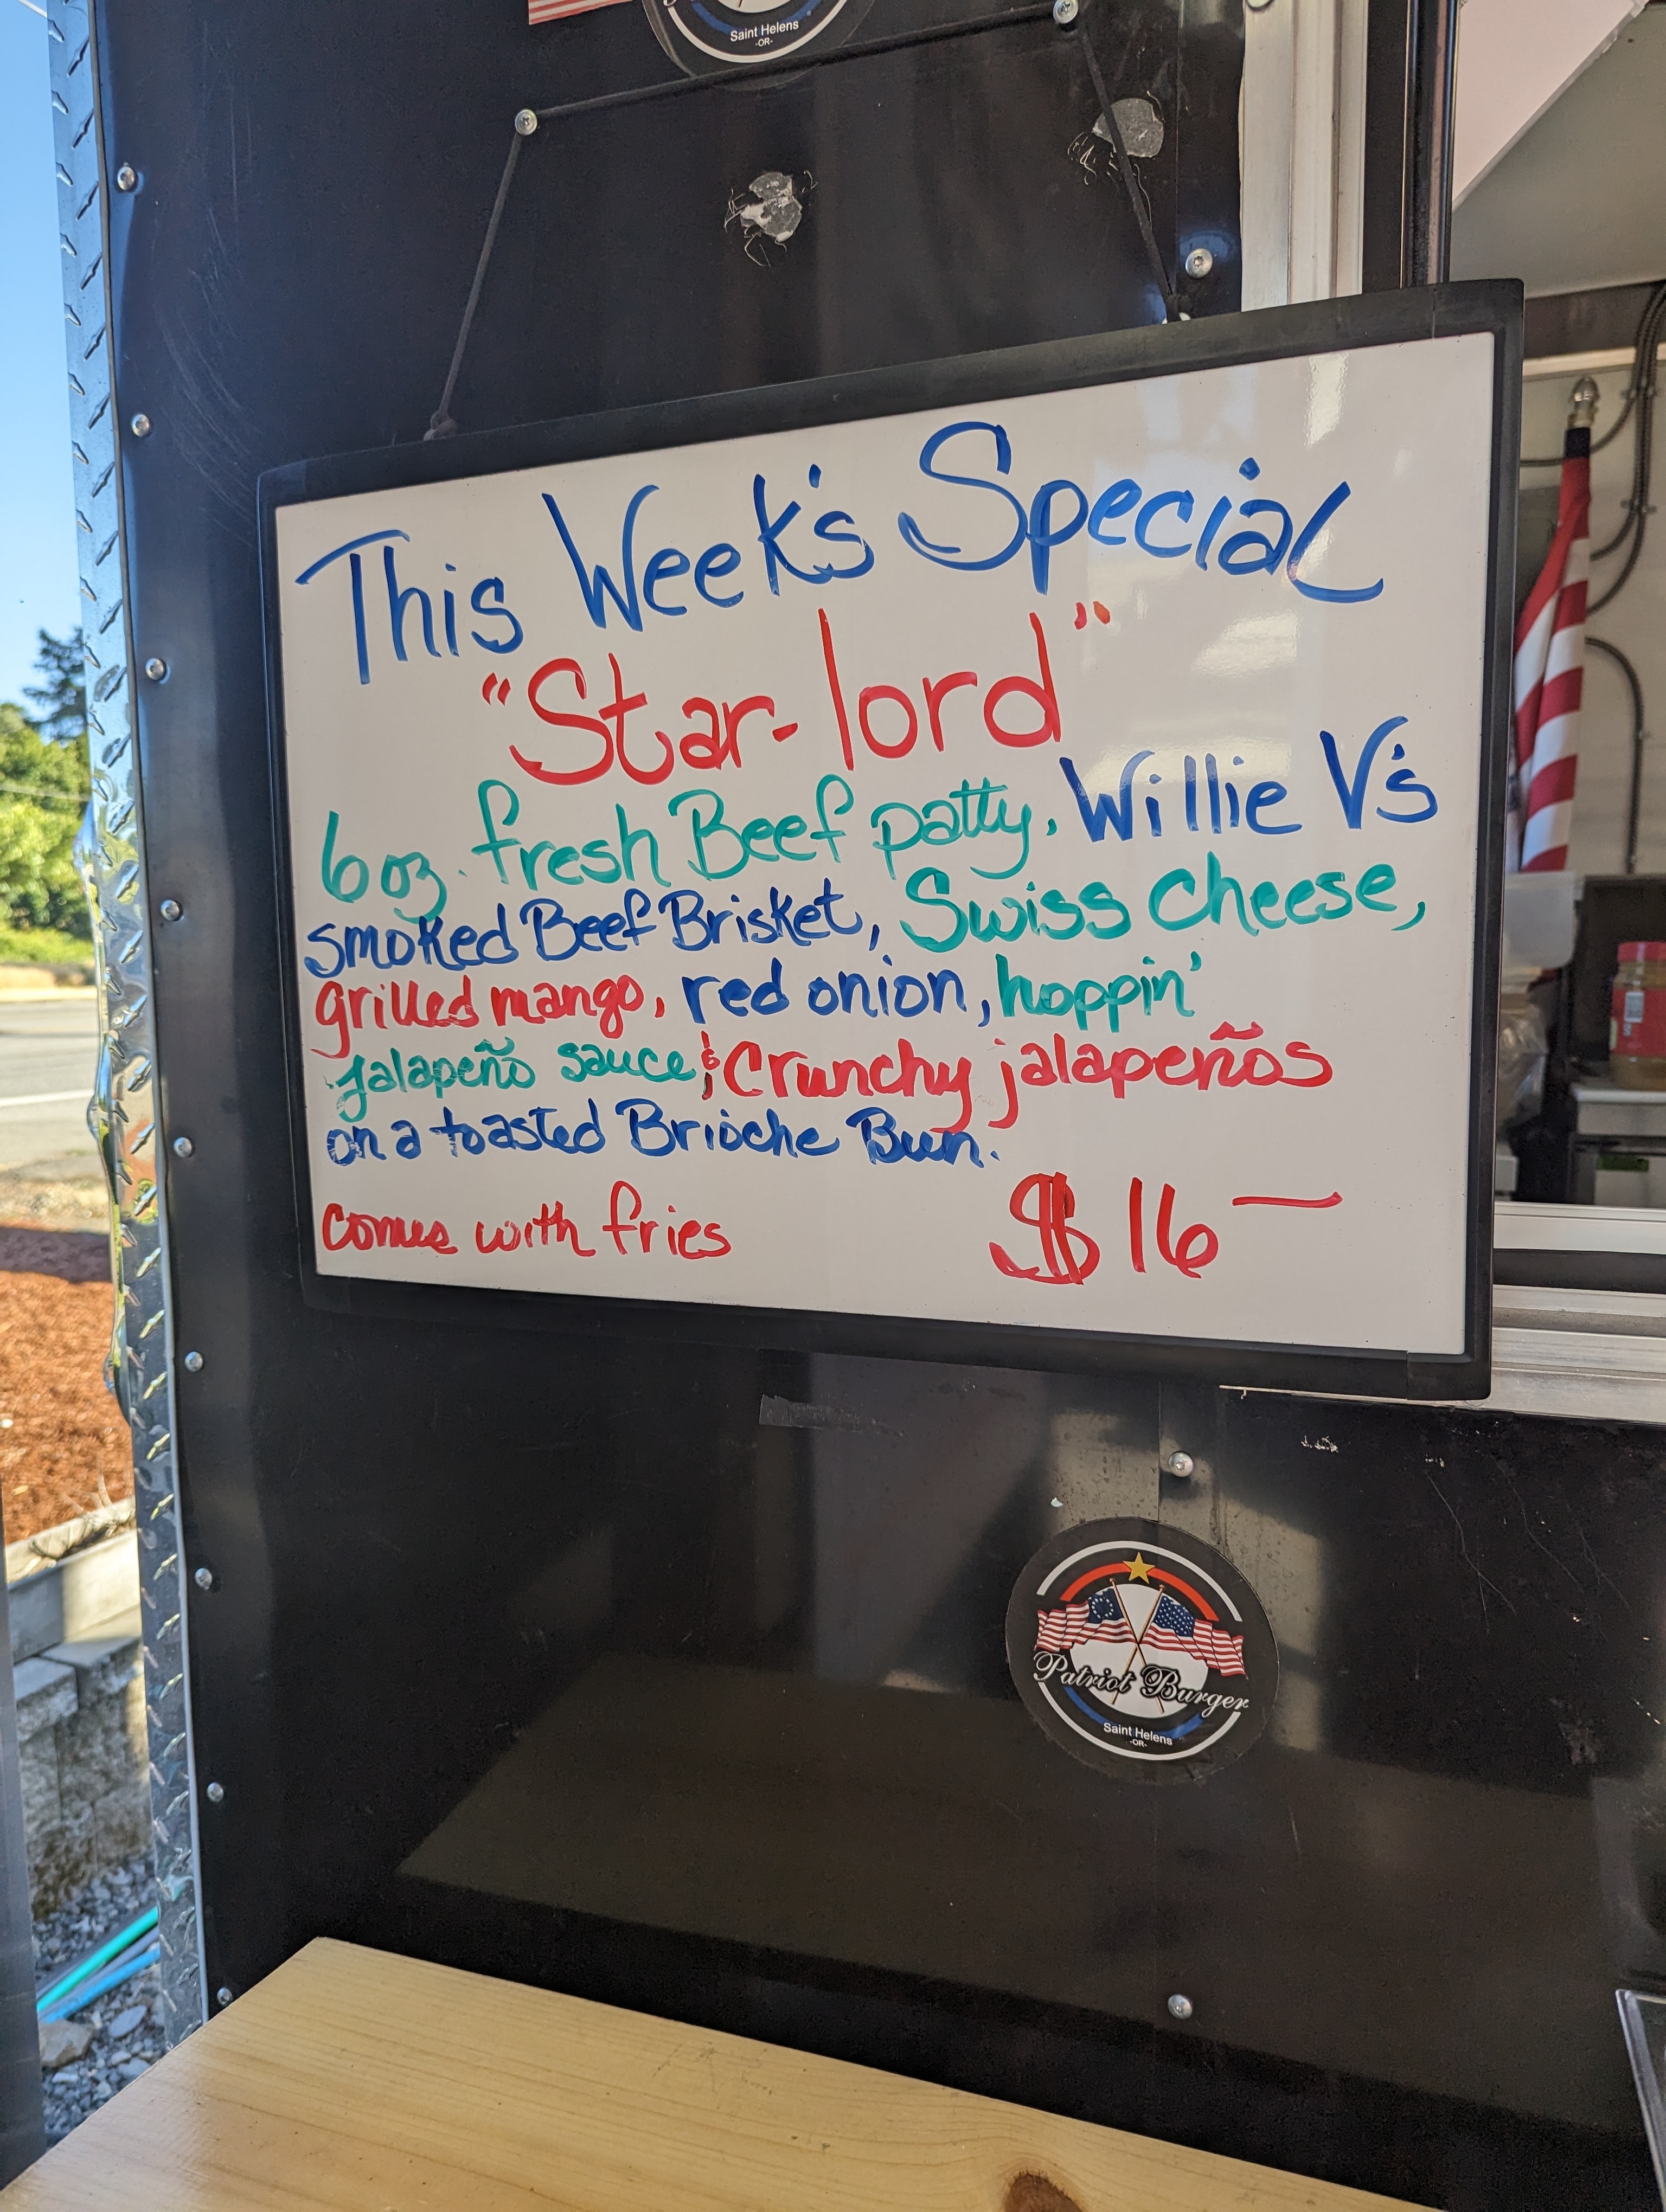 Saint Helens
-OR-
This Week's Special
"Star-lord"
6 oz. fresh Beef patty, Willie V's
smoked Beef Brisket, Swiss cheese,
grilled mango, red onion, hoppin'
jalapeño sauce & Crunchy jalapeños
on a toasted Brioche Bun.
comes with fries $16—
Patriot Burger
Saint Helens
-OR-